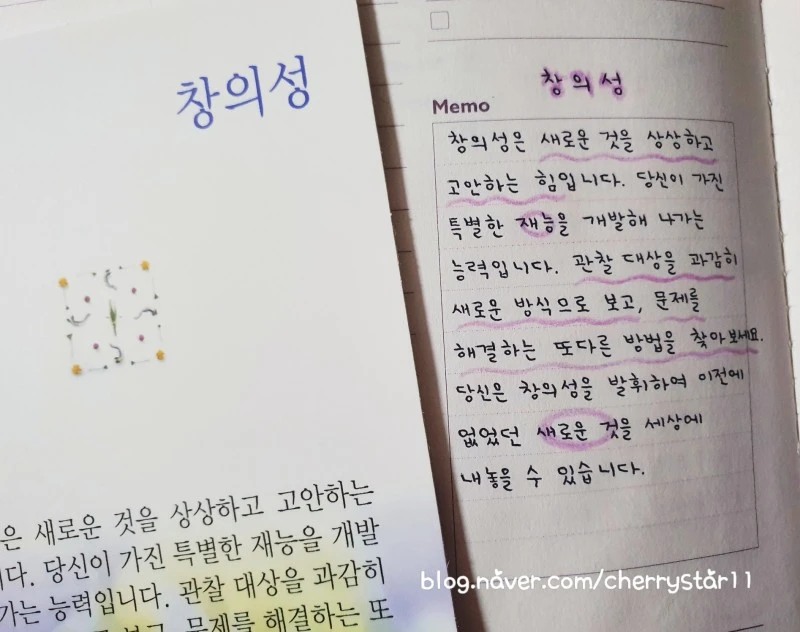 창의성
은 새로운 것을 상상하고 고안하는
다. 당신이 가진 특별한 재능을 개발
가는 능력입니다. 관찰 대상을 과감히
보고, 문제를 해결하는 또
창의성
Memo
창의성은 새로운 것을 상상하고
고안하는 힘입니다. 당신이 가진
특별한 재능을 개발해 나가는
능력입니다. 관찰 대상을 과감히
새로운 방식으로 보고, 문제를
해결하는 또다른 방법을 찾아보세요.
당신은 창의성을 발휘하여 이전에
없었던 새로운 것을 세상에
내놓을 수 있습니다.
blog.naver.com/cherrystar11